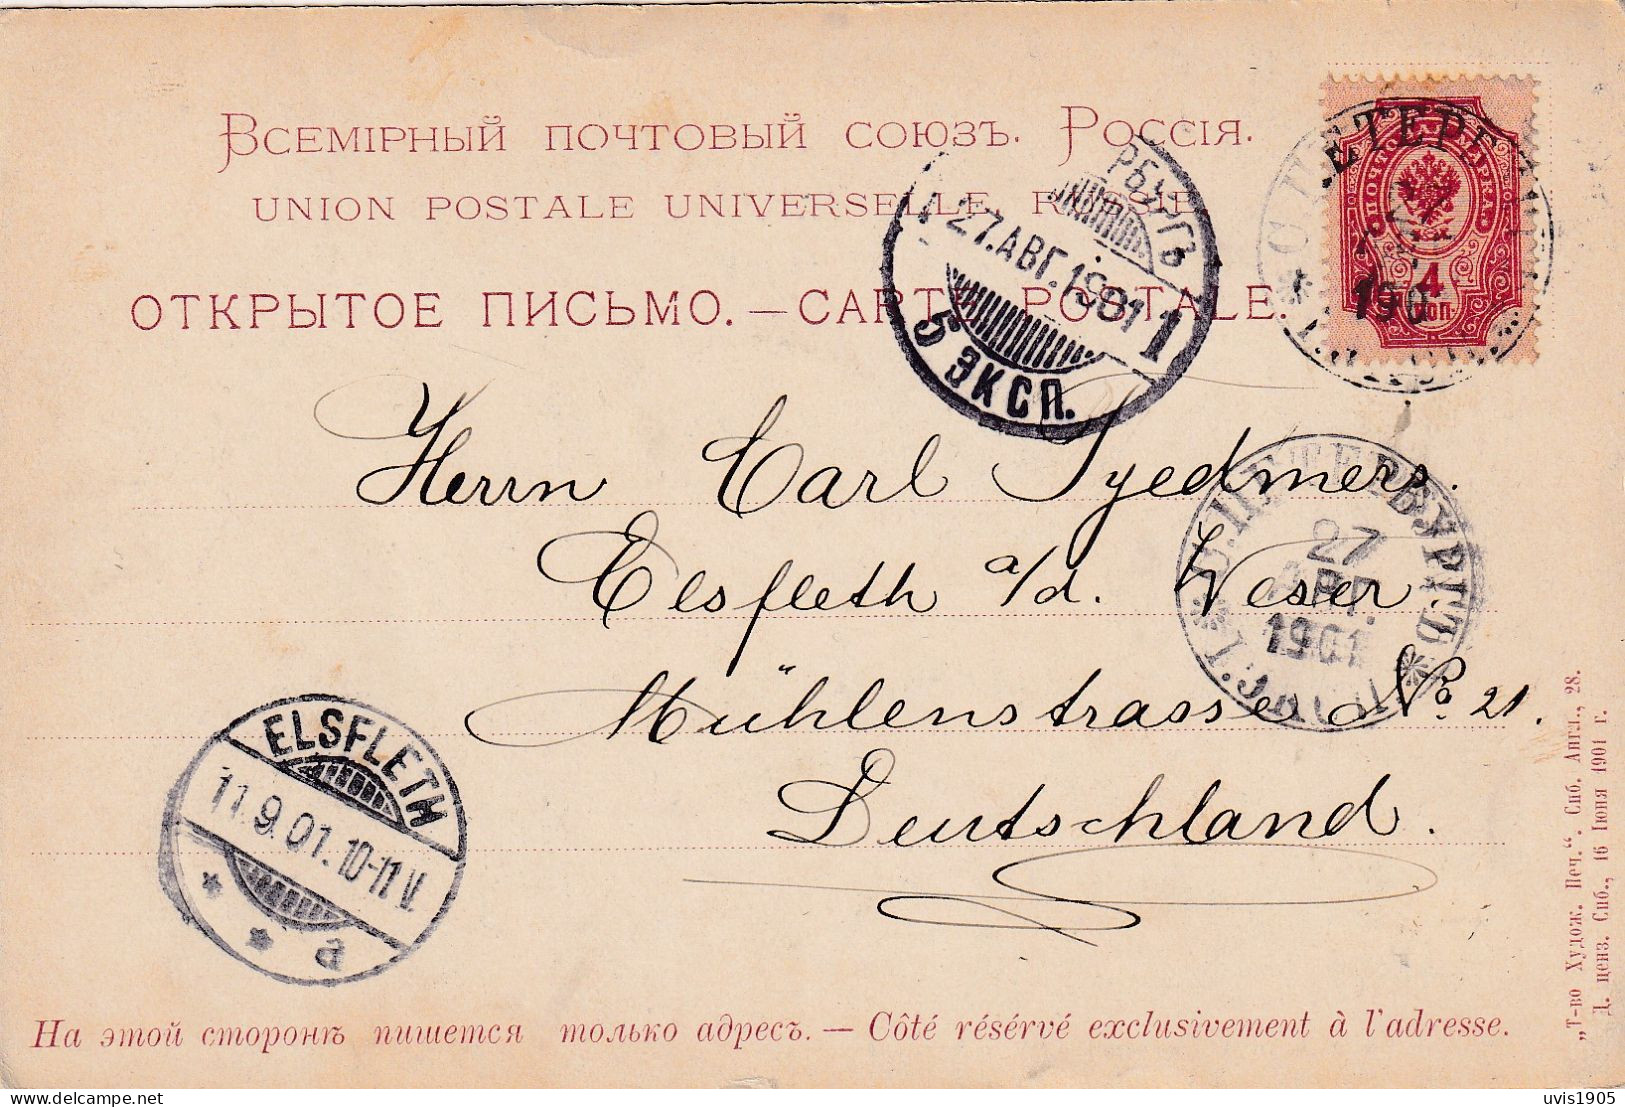 Всемірный почтовый союзъ. Россія.
UNION POSTALE UNIVERSELLE. RUSSIE
ОТКРЫТОЕ ПИСЬМО. — CARTE POSTALE.
ПОЧТОВАЯ МАРКА
4
КОП.
190
РБУРГЪ
27.АВГ.1901
1
5 ЭКСП.
Herrn Carl Tyedmers.
Elsfleth a/d. Weser.
Mühlenstrasse No 21.
Deutschland.
С.ПЕТЕРБУРГЪ
27
АВГ.
1901
ELSFLETH
11.9.01.10-11V.
* * a
На этой сторонѣ пишется только адресъ. — Côté réservé exclusivement à l'adresse.
„Т-во Худож. Печ.“. Спб. Англ., 28.
Д. ценз. Спб., 16 Іюня 1901 г.
delcampe.net
uvis1905